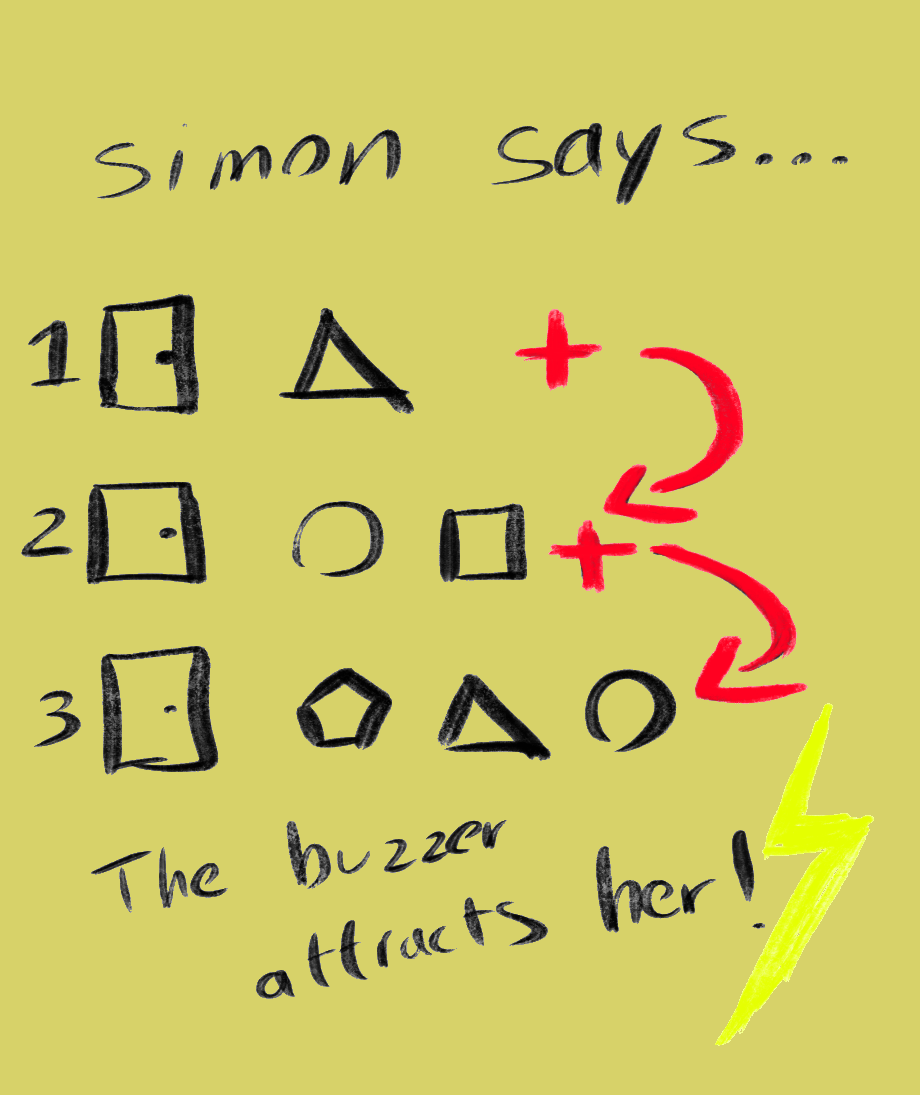 simon says...
1 +
2 +
3
The buzzer
attracts her!